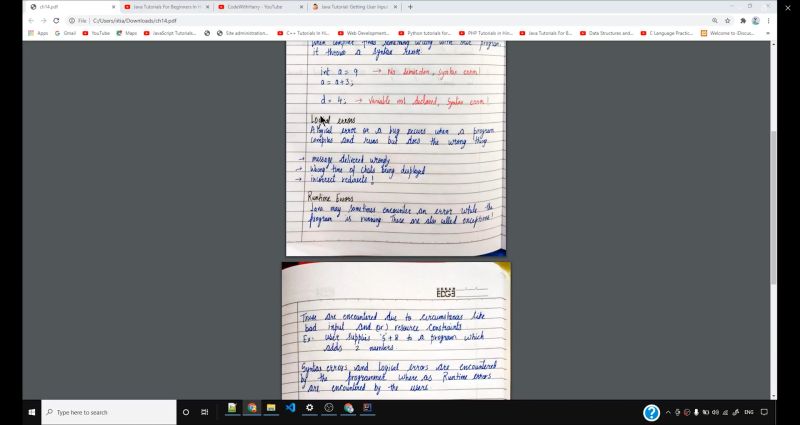 ch14.pdf
Java Tutorial For Beginners In H
YouTube
CodeWithHarry - YouTube
Java Tutorial: Getting User Input
File | C:/Users/
/Downloads/ch14.pdf
Apps
Gmail
YouTube
Maps
JavaScript Tutorials...
Site administration...
C++ Tutorials In Hin...
Python tutorials for...
PHP Tutorials in Hin...
Java Tutorials For B...
Data Structures and...
C Language Practic...
Welcome to iDiscu...
wrong with
program.
it throws a syntax error.
int a = 9 → No semicolon, syntax error!
a = a+3;
d = 4; → Variable not declared, syntax error!
Logical errors
A logical error or a bug occurs when a program
compiles and runs but does the wrong thing
→ message delivered wrongly
→ wrong time of chats being displayed
→ incorrect redirects!
Runtime Errors
Java may sometimes encounter an error while the
program is running. These are also called exceptions!
EDGE
These are encountered due to circumstances like
bad input and (or) resource constraints.
Ex: user supplies 'S' + 8 to a program which
adds 2 numbers.
Syntax errors and logical errors are encountered
by the programmer where as Runtime errors
are encountered by the users.
Type here to search
ENG